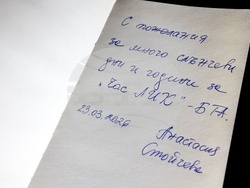 С пожелания
за много слънчеви
дни и години за
"Час ЛИК" - БТА.
23.03.2026
Анастасия
Стойчева